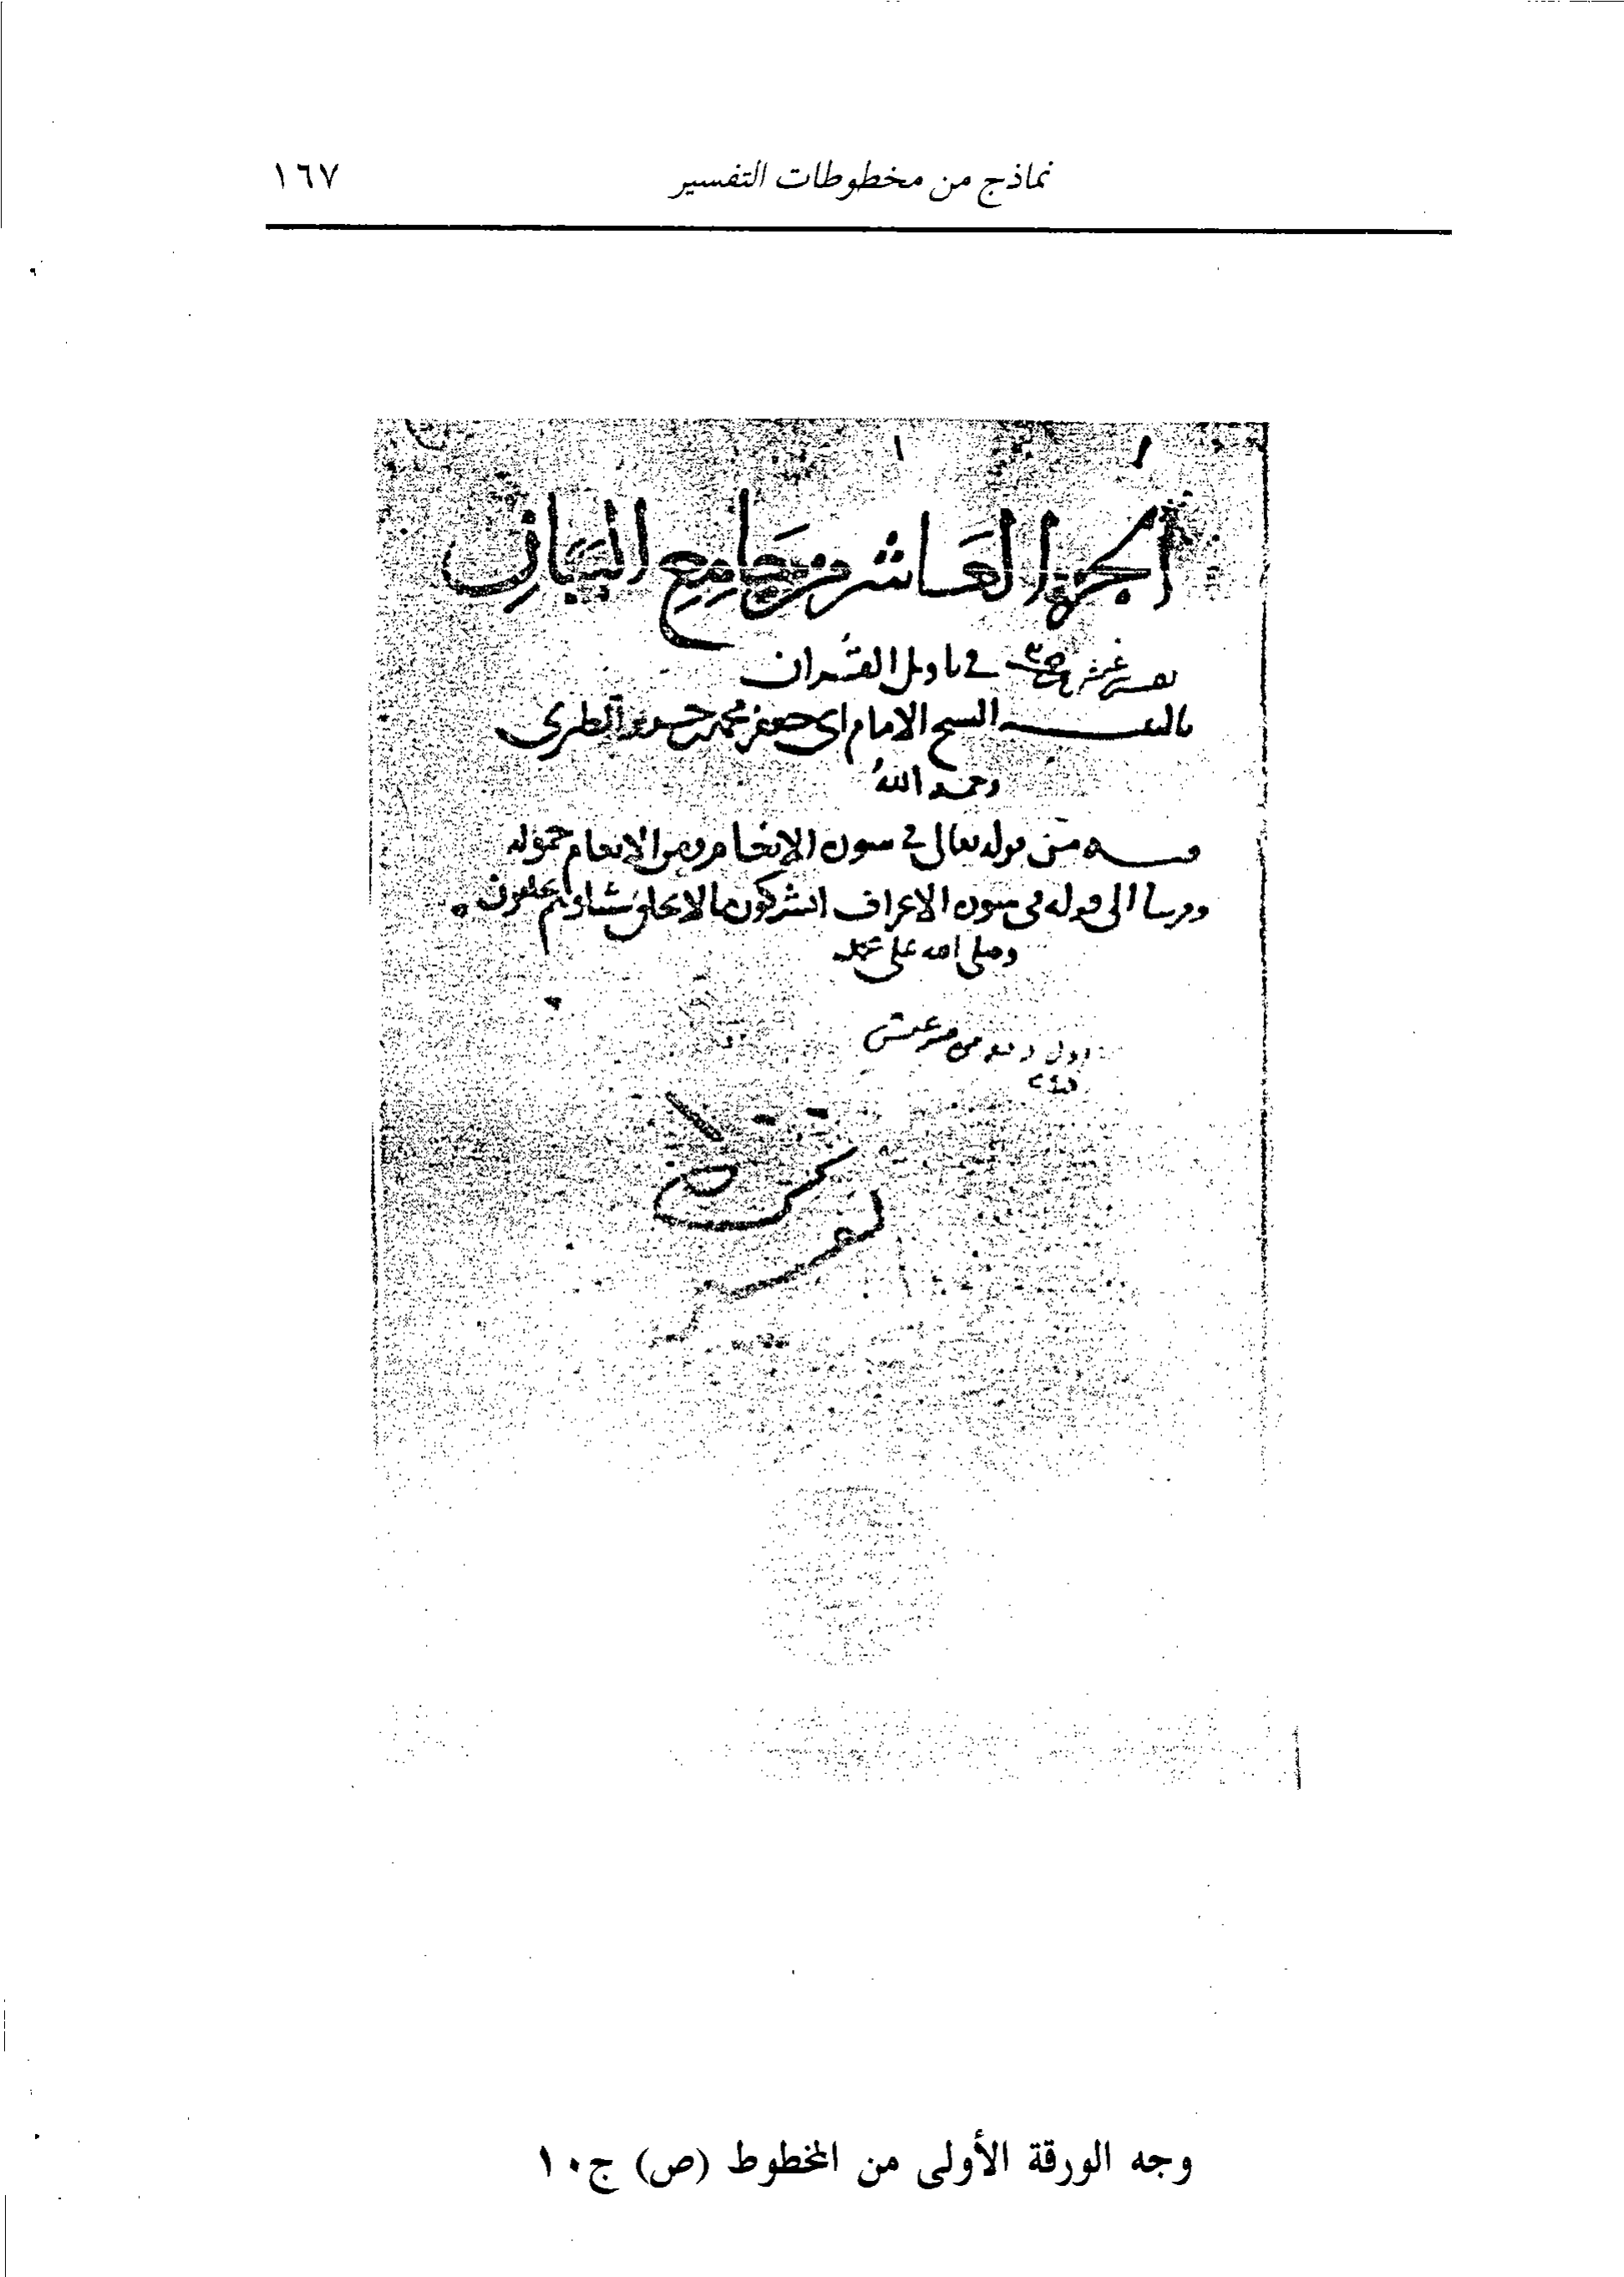 نماذج من مخطوطات التفسير ١٦٧
الجزء العاشر من جامع البيان
في تاويل القران
تاليف الشيخ الامام ابي جعفر محمد بن جرير الطبري
رحمه الله
فيه من قوله تعالى في سورة الانعام ومن الانعام حمولة
وفرشا الى قوله في سورة الاعراف ايشركون ما لا يخلق شيئا وهم يخلقون
وصلى الله على محمد
وجه الورقة الأولى من المخطوط (ص) ج١٠